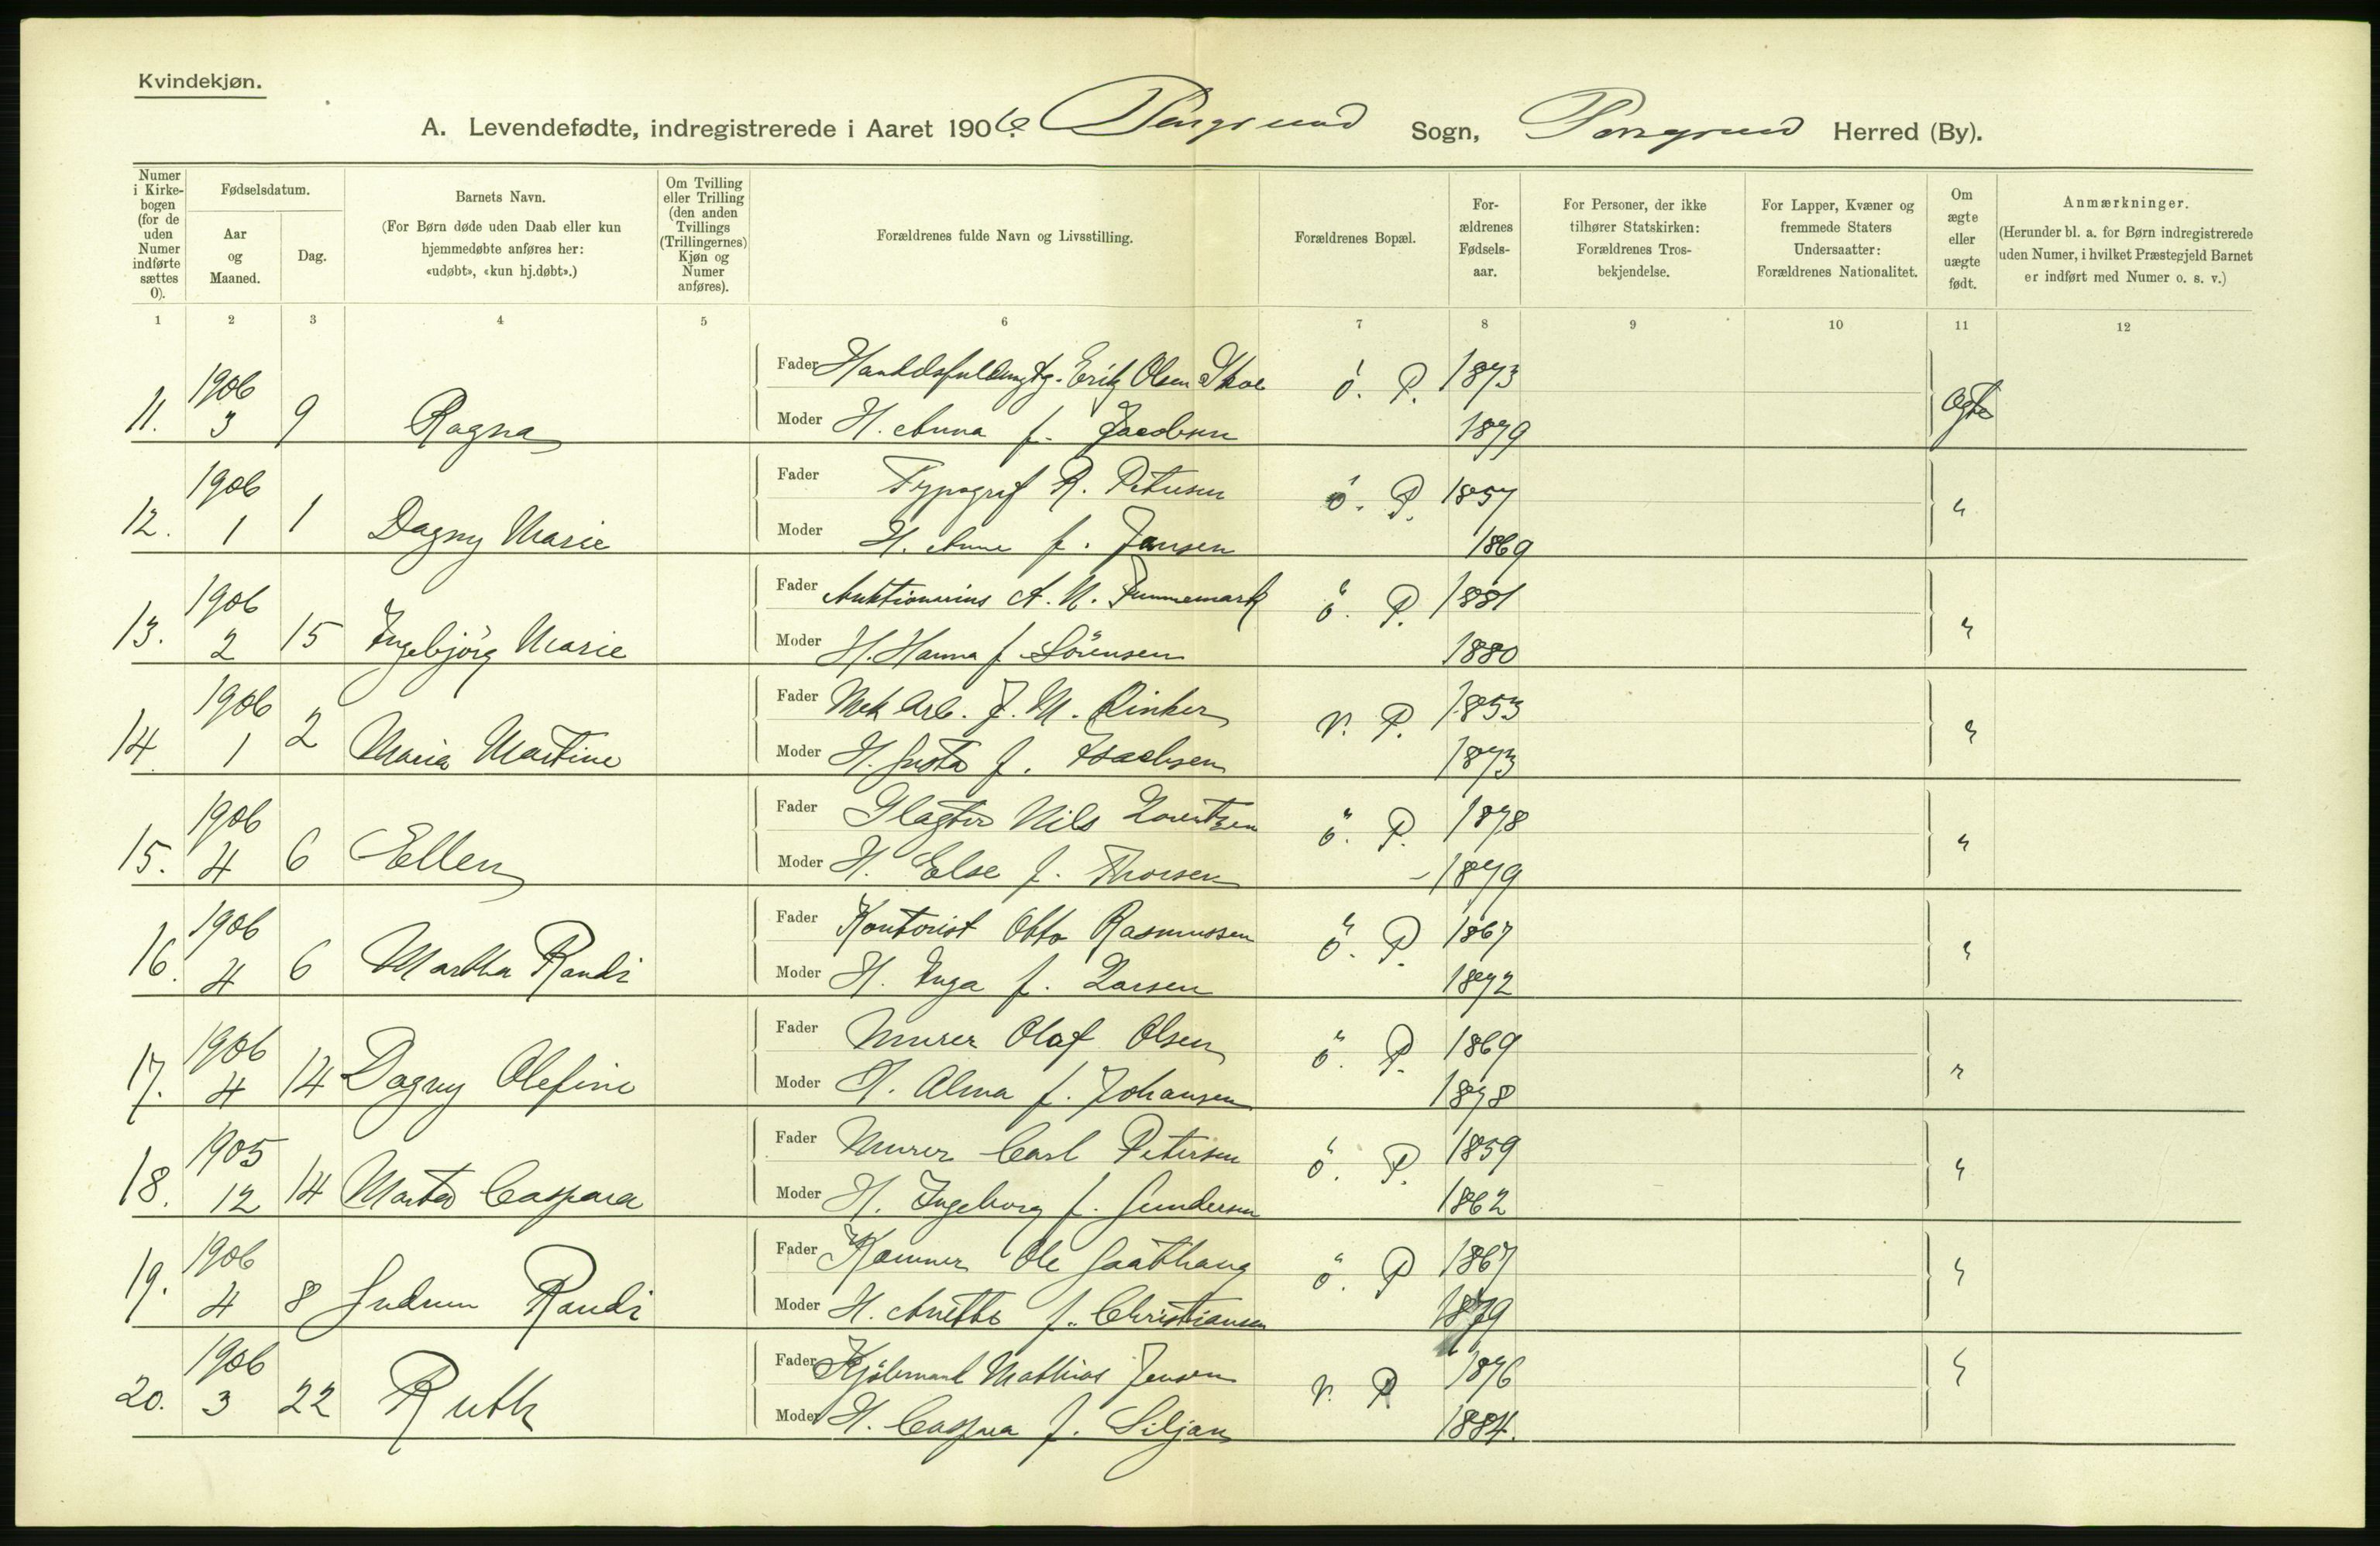 Kvindekjøn.
A. Levendefødte, indregistrerede i Aaret 1906. Porsgrund Sogn, Porsgrund Herred (By).
Numer i Kirkebogen (for de uden Numer indførte sættes 0).
Fødselsdatum.
Aar og Maaned.
Dag.
Barnets Navn.
(For Børn døde uden Daab eller kun hjemmedøbte anføres her: «udøbt», «kun hj.døbt».)
Om Tvilling eller Trilling (den anden Tvillings (Trillingernes) Kjøn og Numer anføres).
Forældrenes fulde Navn og Livsstilling.
Forældrenes Bopæl.
For-ældrenes Fødsels-aar.
For Personer, der ikke tilhører Statskirken: Forældrenes Tros-bekjendelse.
For Lapper, Kvæner og fremmede Staters Undersaatter: Forældrenes Nationalitet.
Om ægte eller uægte født.
Anmærkninger.
(Herunder bl. a. for Børn indregistrerede uden Numer, i hvilket Præstegjeld Barnet er indført med Numer o. s. v.)
1 2 3 4 5 6 7 8 9 10 11 12
11. 1906 3 9 Ragna
Fader Erik Olsen Skoe ö. P. 1873 Ægte
Moder H. Anna f. Jacobsen 1879
12. 1906 1 1 Dagny Marie
Fader Typograf R. Petersen ö. P. 1857 "
Moder H. Anne f. Jansen 1869
13. 1906 2 15 Ingebjörg Marie
Fader A. N. ö. P. 1881 "
Moder H. Hanna f. Sörensen 1880
14 1906 1 2 Maria Martine
Fader Mek Arb. J. M. Rinker v. P. 1853 "
Moder H. f. Isachsen 1873
15. 1906 4 6 Ellen
Fader Slagter Nils Lorentzen ö. P. 1878 "
Moder H. Else f. Thorsen 1879
16. 1906 4 6 Martha Randi
Fader Kontorist Otto Rasmussen ö. P. 1867 "
Moder H. Inga f. Larsen 1872
17. 1906 4 14 Dagny Olefine
Fader Murer Olaf Olsen ö. P. 1869 "
Moder H. Alma f. Johansen 1878
18. 1905 12 14 Marta Caspara
Fader Murer Carl Petersen ö. P. 1859 "
Moder H. Ingeborg f. Gundersen 1862
19. 1906 4 8 Gudrun Randi
Fader Ole ö. P 1867 "
Moder H. Anette f. Christiansen 1879
20. 1906 3 22 Ruth
Fader Kjöbmand Mathias Jensen v. P 1876 "
Moder H. Caspara f. Siljan 1884.